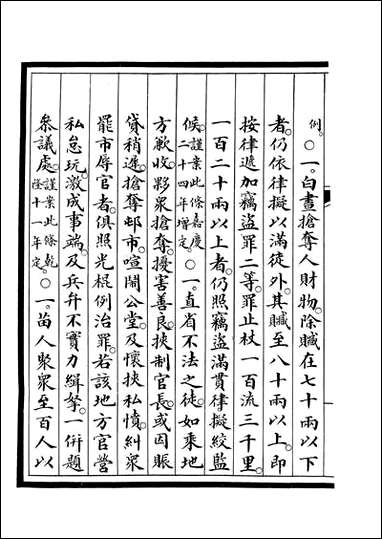 例。〇一。白晝搶奪人財物。除贓在七十兩以下
者。仍依律擬以滿徒外。其贓至八十兩以上。即
按律遞加竊盜罪二等。罪止杖一百流三千里。
一百二十兩以上者。仍照竊盜滿貫律擬絞監
候。謹案此條嘉慶二十四年增定。〇一。直省不法之徒。如乘地
方歉收。夥衆搶奪。擾害善良。挾制官長。或因賑
貸稍遲。搶奪邨市。喧鬧公堂。及懷挾私憤。糾衆
罷市辱官者。俱照光棍例治罪。若該地方官營
私怠玩。激成事端。及兵弁不實力緝拏。一併題
叅議處。謹案此條乾隆十一年定。〇一。苗人聚衆至百人以